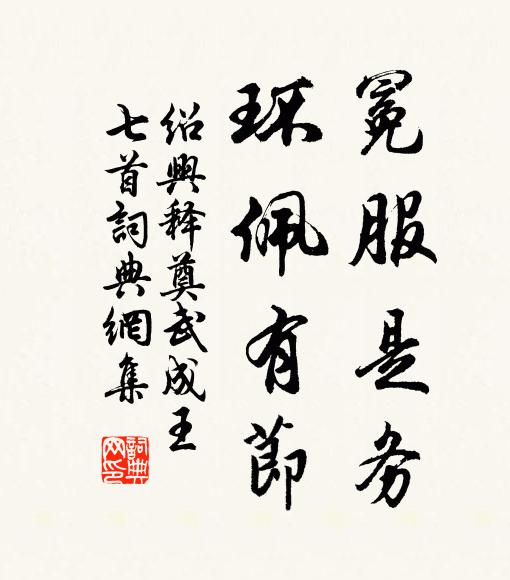 冕服是务
环佩有節
绍興释奠武成王
七首詞典網集
詞典
网印